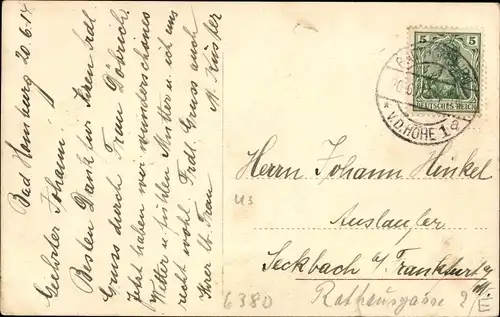 Bad Homburg 20.6.14
Geehrter Johann.
Besten Dank für Ihren Frdl
Gruss durch Frau Dötrich.
jetzt haben wir wunderschönes
Wetter u fühlen Mutter u ich uns
recht wohl. Frdl. Gruss auch
Ihrer lb. Frau M. Küster
5 5
DEUTSCHES REICH
V.D.HÖHE 1
Herrn Johann Hinkel
Auslaufer
Seckbach a/Frankfurt a/M.
Rathausgasse 2
6380